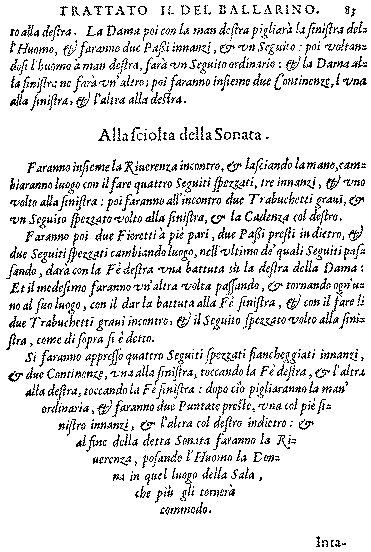 TRATTATO II. DEL BALLARINO. 83
to alla destra. La Dama poi con la man destra pigliarà la sinistra del-
l'Huomo, & faranno due Passi innanzi, & vn Seguito: poi voltan-
dosi l'huomo à man destra, farà vn Seguito ordinario: & la Dama al-
la sinistra ne farà vn'altro; poi faranno insieme due Continenze, l'vna
alla sinistra, & l'altra alla destra.
Alla sciolta della Sonata.
Faranno insieme la Riuerenza incontro, & lasciando la mano, cam-
biaranno luogo con il fare quattro Seguiti spezzati, tre innanzi, & vno
volto alla sinistra: poi faranno all'incontro due Trabuchetti graui, &
vn Seguito spezzato volto alla sinistra, & la Cadenza col destro.
Faranno poi due Fioretti à piè pari, due Passi presti in dietro, &
due Seguiti spezzati cambiando luogo, nell'vltimo de' quali Seguiti pas-
sando, darà con la Fè destra vna battuta sù la destra della Dama:
Et il medesimo faranno vn'altra volta passando, & tornando ogni u-
no al suo luogo, con il dar la battuta alla Fè sinistra, & con il fare li
due Trabuchetti graui incontro, & il Seguito spezzato volto alla sini-
stra, come di sopra si è detto.
Si faranno appresso quattro Seguiti spezzati fiancheggiati innanzi,
& due Continenze, vna alla sinistra, toccando la Fè destra, & l'altra
alla destra, toccando la Fè sinistra: dopo ciò pigliaranno la man'
ordinaria, & faranno due Puntate preste, vna col piè si-
nistro innanzi, & l'altra col destro indietro: &
al fine della detta Sonata faranno la Ri-
uerenza, posando l'Huomo la Don-
na in quel luogo della Sala,
che più gli tornerà
commodo.
Inta-